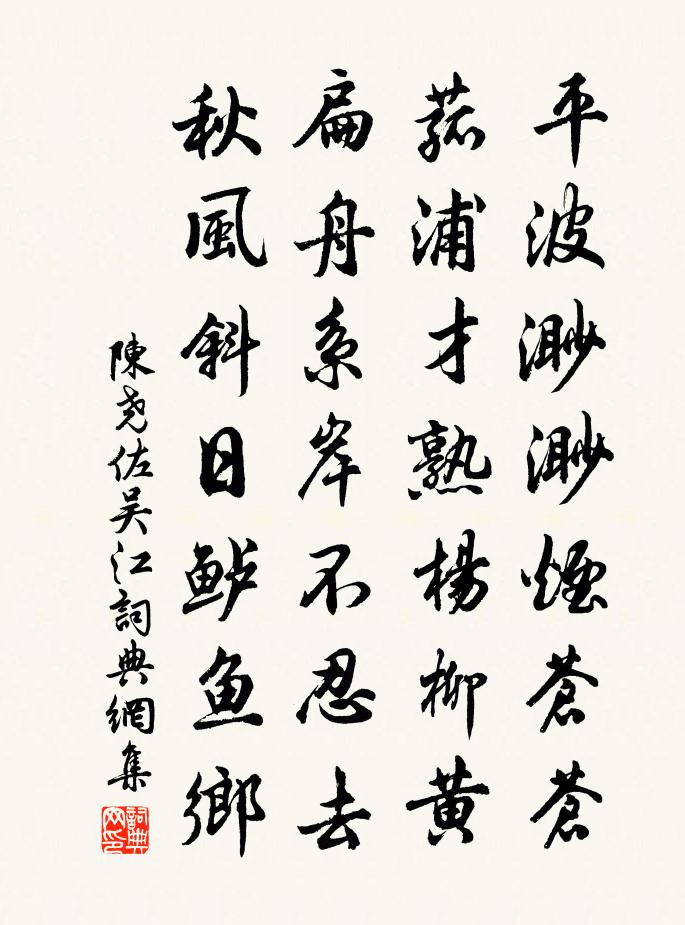 平波渺渺煙蒼蒼
菰浦才熟楊柳黄
扁舟系岸不忍去
秋風斜日鲈鱼鄉
陳尧佐吴江詞典網集
詞典网印